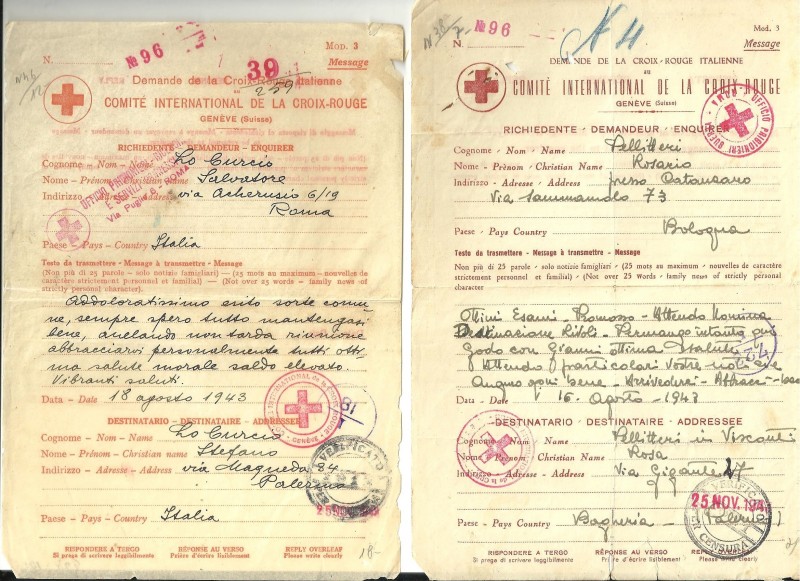 № 96
N.
39
259
MOD. 3
Message
Demande de la Croix-Rouge Italienne
au
COMITÉ INTERNATIONAL DE LA CROIX-ROUGE
GENÈVE (Suisse)
RICHIEDENTE - DEMANDEUR - ENQUIRER
Cognome - Nom - Name Lo Curcio
Nome - Prénom - Christian Name Salvatore
Indirizzo - Adresse - Address via Acherusio 6/19
Roma
Paese - Pays - Country Italia
Testo da trasmettere - Message à transmettre - Message
(Non più di 25 parole - solo notizie famigliari) — (25 mots au maximum - nouvelles de
caractère strictement personnel et familial) — (Not over 25 words - family news of
strictly personal character)
Addoloratissimo unito sorte comu=
ne, sempre spero tutto mantengasi
bene, anelando non tarda riunione
abbracciarvi personalmente tutti otti=
ma salute morale saldo elevato.
Vibranti saluti.
Data - Date 18 agosto 1943
DESTINATARIO - DESTINATAIRE - ADDRESSEE
Cognome - Nom - Name Lo Curcio
Nome - Prénom - Christian Name Stefano
Indirizzo - Adresse - Address via Maqueda 84
Palermo
Paese - Pays - Country Italia
RISPONDERE A TERGO RÉPONSE AU VERSO REPLY OVERLEAF
Si prega di scrivere leggibilmente Prière d'écrire lisiblement Please write clearly
18-
№ 96
N.
N 11
Mod. 3
Message
DEMANDE DE LA CROIX-ROUGE ITALIENNE
au
COMITÉ INTERNATIONAL DE LA CROIX-ROUGE
GENÈVE (Suisse)
UFFICIO PRIGIONIERI GUERRA
RICHIEDENTE - DEMANDEUR - ENQUIRER
Cognome - Nom - Name Pellitteri
Nome - Prénom - Christian Name Rosario
Indirizzo - Adresse - Address presso Catanzaro
Via Sammamolo 73
Paese - Pays Country Bologna
Testo da trasmettere - Message à transmettre - Message
(Non più di 25 parole - solo notizie famigliari) (25 mots au maximum - nouvelles de caractère
strictement personnel et familial) (Not over 25 Words - family news of strictly personal
character
Ottimi Esami - Promosso - Attendo Nomina
Destinazione Rivoli - Permango intanto qui
Godo con Gianni ottima salute
Attendo particolari Vostre notizie
Auguro ogni bene - Arrivederci - Abbracci
Data - Date 16 Agosto - 1943
DESTINATARIO - DESTINATAIRE - ADDRESSEE
Cognome - Nom - Name Pellitteri in Visconti
Nome - Prénom - Christian Name Rosa
Indirizzo - Adresse - Address Via Gigante 27
25 NOV. 194
VERIFIC
CENSURA
Paese - Pays - Country Bagheria - (Palermo)
RISPONDERE A TERGO RÉPONSE AU VERSO REPLY OVERLEAF
Si prega di scrivere leggibilmente Prière d'écrire lisiblement Please write clearly